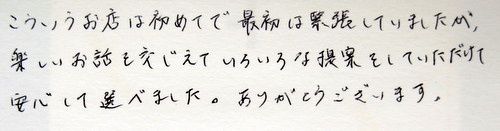 こういうお店は初めてで最初は緊張していましたが、
楽しいお話も交じえていろいろな提案をしていただけて
安心して選べました。ありがとうございます。